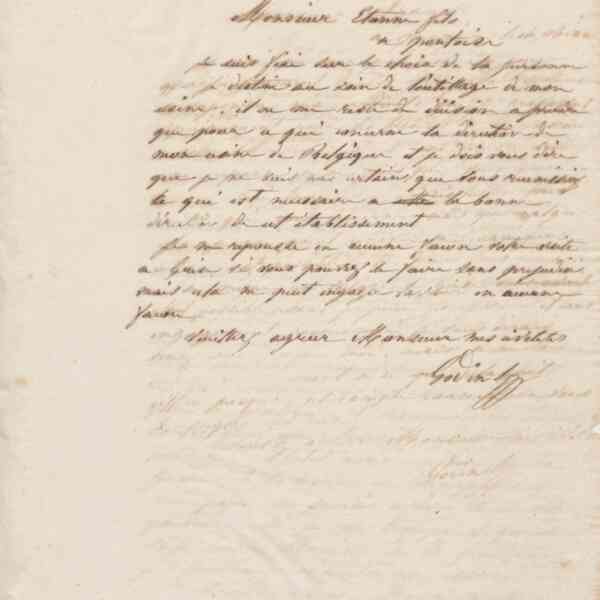 Monsieur Etienne fils
a pontoise
je suis fixé sur le choix de la personne
que je destine au soin de l'outillage de mon
usine, il ne me reste de décision a prendre
que pour ce qui concerne la direction de
mon usine de Belgique et je dois vous dire
que je ne suis pas certain que vous reunissiez
ce qui est necessaire a la bonne
direction de cet établissement
je ne repousse en aucune façon votre visite
a Guise si vous pouvez le faire sans prejudice
mais cela ne peut engager en aucune
façon
Veuillez agreer Monsieur mes civilités
Godin